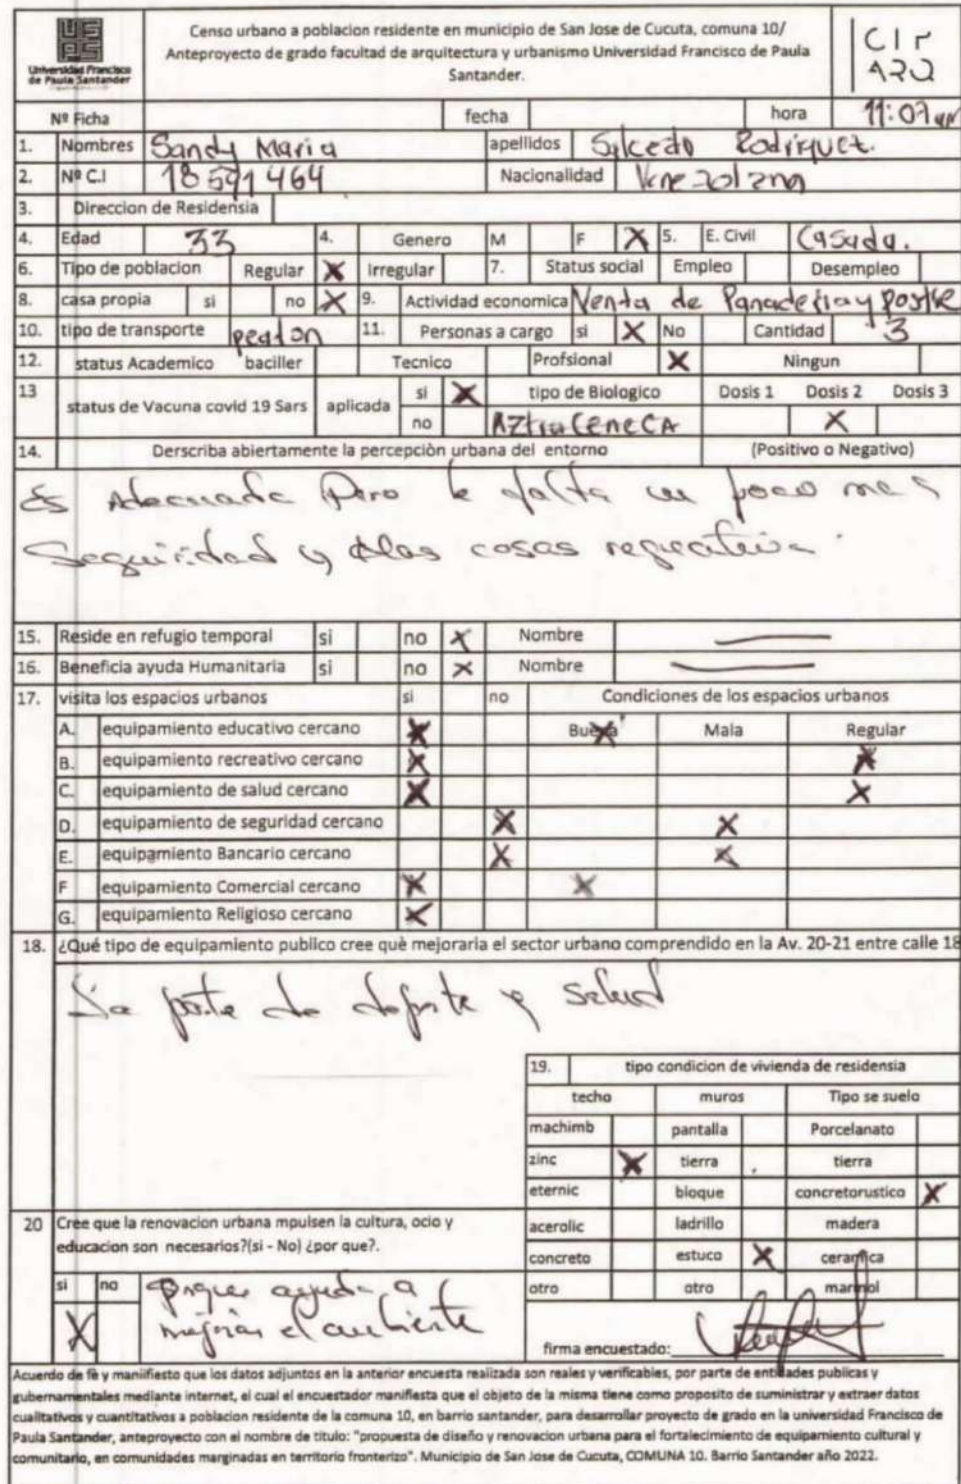 Universidad Francisco
de Paula Santander
Censo urbano a poblacion residente en municipio de San Jose de Cucuta, comuna 10/
Anteproyecto de grado facultad de arquitectura y urbanismo Universidad Francisco de Paula
Santander.
CIr
ARQ
Nº Ficha fecha hora 11:07 am
1. Nombres Sandy Maria apellidos Salcedo Rodriguez.
2. Nº C.I 18591464 Nacionalidad Venezolana
3. Direccion de Residensia
4. Edad 33 4. Genero M F X 5. E. Civil Casada.
6. Tipo de poblacion Regular X Irregular 7. Status social Empleo Desempleo
8. casa propia si no X 9. Actividad economica Venta de Panaderia y Postre
10. tipo de transporte peaton 11. Personas a cargo si X No Cantidad 3
12. status Academico baciller Tecnico Profsional X Ningun
13 status de Vacuna covid 19 Sars aplicada si X tipo de Biologico Dosis 1 Dosis 2 Dosis 3
no AztraCeneCA X
14. Derscriba abiertamente la percepciòn urbana del entorno (Positivo o Negativo)
Es Adecuada Pero le falta un poco mas
Seguridad y cosas
15. Reside en refugio temporal si no X Nombre
16. Beneficia ayuda Humanitaria si no X Nombre
17. visita los espacios urbanos si no Condiciones de los espacios urbanos
A. equipamiento educativo cercano X Buena X Mala Regular
B. equipamiento recreativo cercano X X
C. equipamiento de salud cercano X X
D. equipamiento de seguridad cercano X X
E. equipamiento Bancario cercano X X
F equipamiento Comercial cercano X X
G. equipamiento Religioso cercano X
18. ¿Qué tipo de equipamiento publico cree què mejoraria el sector urbano comprendido en la Av. 20-21 entre calle 18
La parte de deporte y salud
19. tipo condicion de vivienda de residensia
techo muros Tipo se suelo
machimb pantalla Porcelanato
zinc X tierra tierra
eternic bloque concretorustico X
acerolic ladrillo madera
concreto estuco X ceramica
otro otro marmol
20 Cree que la renovacion urbana mpulsen la cultura, ocio y
educacion son necesarios?(si - No) ¿por que?.
si no
X porque ayuda a
mejorar el ambiente
firma encuestado:
Acuerdo de fè y maniifiesto que los datos adjuntos en la anterior encuesta realizada son reales y verificables, por parte de entidades publicas y
gubernamentales mediante internet, el cual el encuestador manifiesta que el objeto de la misma tiene como proposito de suministrar y extraer datos
cualitativos y cuantitativos a poblacion residente de la comuna 10, en barrio santander, para desarrollar proyecto de grado en la universidad Francisco de
Paula Santander, anteproyecto con el nombre de titulo: "propuesta de diseño y renovacion urbana para el fortalecimiento de equipamiento cultural y
comunitario, en comunidades marginadas en territorio fronterizo". Municipio de San Jose de Cucuta, COMUNA 10. Barrio Santander año 2022.